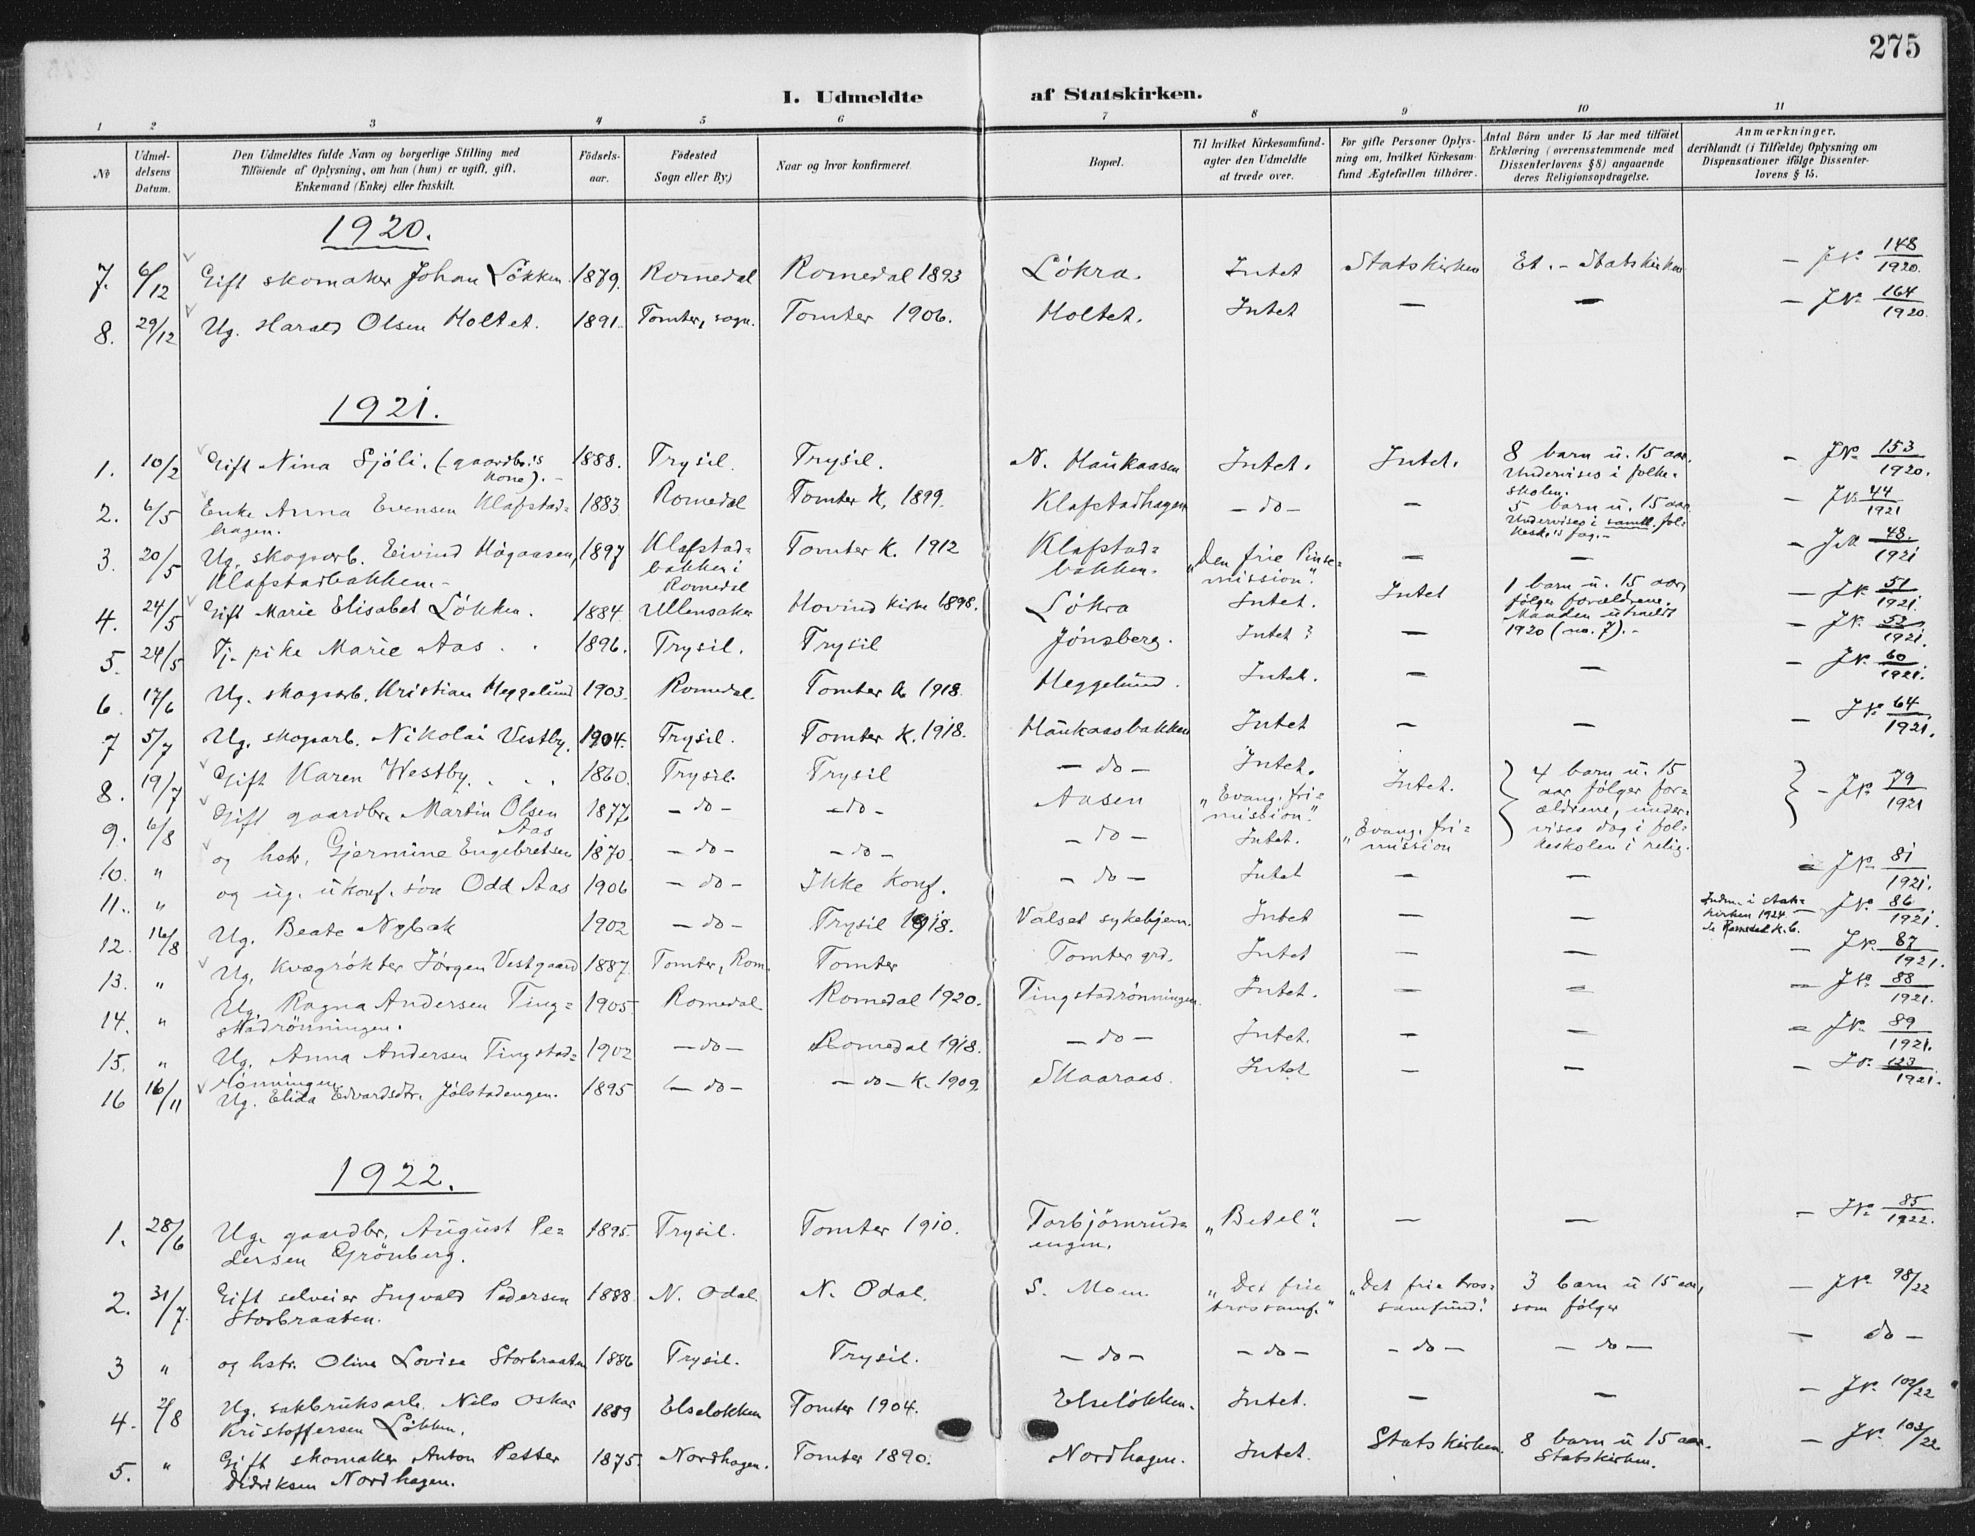 275
I. Udmeldte af Statskirken.
1 2 3 4 5 6 7 8 9 10 11
No
Udmeldelsens Datum.
Den Udmeldtes fulde Navn og borgerlige Stilling med
Tilföiende af Oplysning, om han (hun) er ugift, gift,
Enkemand (Enke) eller fraskilt.
Födsels-
aar.
Födested
Sogn eller By.)
Naar og hvor konfirmeret.
Bopæl.
Til hvilket Kirkesamfund
agter den Udmeldte
at træde over.
For gifte Personer Oplys-
ning om, hvilket Kirkesam-
fund Ægtefællen tilhörer.
Antal Börn under 15 Aar med tilföiet
Erklæring (overensstemmende med
Dissenterlovens § 8) angaaende
deres Religionsopdragelse.
Anmærkninger,
deriblandt (i Tilfælde) Oplysning om
Dispensationer ifölge Dissenter-
lovens § 15.
1920.
7. 6/12 Gift skomaker Johan Løkken 1879. Romedal Romedal 1893 Løkra. Intet Statskirken Et. - Statskirken - JN. 148/1920.
8. 29/12 Ug. Harald Olsen Holtet. 1891. Tomter, sogn. Tomter 1906. Holtet. Intet — — - JN. 164/1920.
1921.
1. 10/2 Gift Nina Sjöli. (gaardbr.s 1888. Trysil. Trysil. N. Haukaasen Intet. Intet. 8 barn u. 15 aar. - JN. 153/1920.
kone). - Undervises i folke-
skolen.
2. 6/5 Enke Anna Evensen Klafstad= 1883 Romedal Tomter K, 1899. Klafstadhagen - do - — 5 barn u. 15 aar. - JN 44/1921
hagen. Undervises i samtl. fol=
kesk.s fag. -
3. 20/5 Ug. skogsarb. Eivind Högaasen, 1897 Klafstad= Tomter K. 1912 Klafstad= "Den frie Pinse= — — - JN 48./1921
Klafstadbakken. - bakken i bakken. mission".
Romedal
4. 24/5 Gift Marie Elisabet Løkken. 1884. Ullensaker Hovind kirke 1898. Løkra Intet. Intet 1 barn u. 15 aar, - JN. 51/1921.
følger forældrene.
Manden utmeldt
1920 (no. 7). -
5. 24/5 Tj. pike Marie Aas . . 1896. Trysil. Trysil Jønsberg. Intet? — - JN. 53/1921.
6. 17/6 Ug. skogsarb. Kristian Heggelund 1903. Romedal. Tomter k 1918. Heggelund. Intet. — — - JN. 60/1921.
7 5/7 Ug. skogsarb. Nikolai Vestby. 1904. Trysil. Tomter K. 1918. Haukaasbakken Intet — — - JN. 64/1921.
8. 19/7 Gift Karen Westby. . . 1860. Trysil. Trysil - do - Intet. Intet. 4 barn u. 15 - JN. 79/1921
9. 6/8 Gift gaardbr. Martin Olsen 1877, - do - - do - Aasen "Evang. fri= aar følger for=
Aas mission". ældrene, under=
10. " og hstr. Gjermine Engebretsen 1870. - do - - do - - do - Intet. "Evang. fri= vises dog i fol=
mission keskolen i relig.
11. " og ug. ukonf. søn Odd Aas 1906 - do - Ikke konf. - do - Intet — — JN. 81/1921.
12. 16/8 Ug. Beate Nybak 1902 - do - Trysil 1918. Valset sykehjem. Intet — — Indm. i stats= - JN. 86/1921.
kirken 1924
13. " Ug. Kvægrökter Jörgen Vestgaard 1887. Tomter, Rom. Tomter Tomter grd. Intet — — - JN. 87/1921.
14. " Ug. Ragna Andersen Ting= 1905. Romedal Romedal 1920. Tingstadrönningen. Intet. — — - JN. 88/1921.
stadrönningen.
15. " Ug. Anna Andersen Tingstad= 1902 - do - Romedal 1918. - do - Intet. — — - JN. 89/1921.
rönningen
16 16/11 Ug. Elida Edvardsdtr. Jølstadengen. 1895 - do - - do - K. 1909 Skaaraas. Intet — — - JN. 123/1921.
1922.
1. 28/6 Ug. gaardbr. August Pe= 1895. Trysil. Tomter 1910. Torbjörnruds= "Betel". — — - JN. 85/1922.
dersen Grönberg. engen.
2. 31/7. Gift selveier Ingvald Pedersen 1888. N. Odal. N. Odal. S. Moen. "Det frie "Det frie tros= 3 barn u 15 aar, - JN. 98/22
Storbraaten. trossamf." samfund". som følger
3 " og hstr. Oline Lovise Storbraaten 1886 Trysil. Trysil. - do - - do - - do - - do - - do -
4. 2/8 Ug. sakbruksarb. Nils Oskar 1889 Elseløkken Tomter 1904. Elseløkken. Intet. — — - JN. 102/22
Kristoffersen Løkken.
5. " Gift skomaker Anton Petter 1875. Nordhagen. Tomter 1890. Nordhagen. Intet. Statskirken. 8 barn u 15 aar. - JN. 103/22.
Didriksen Nordhagen. Statskirken.